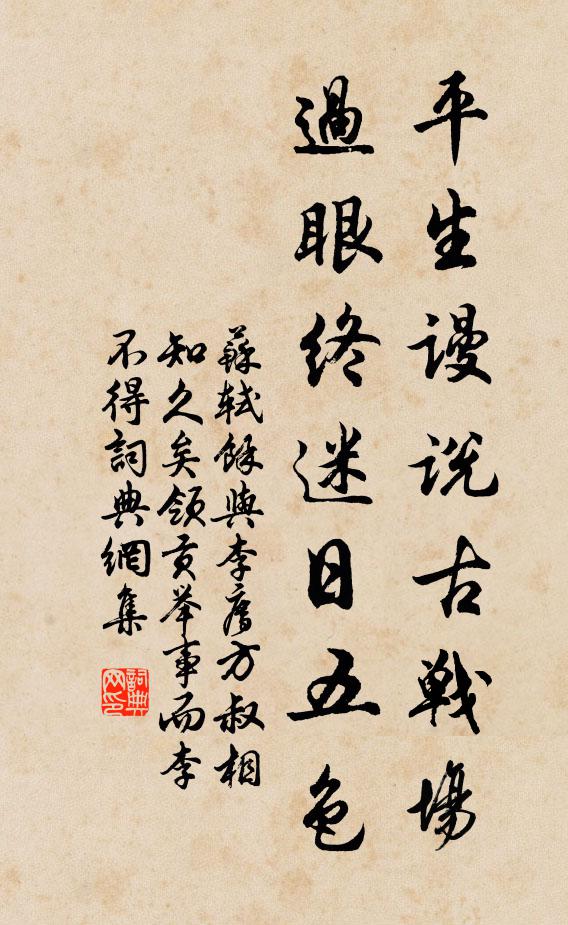 平生謾説古戦場
過眼終迷日五色
蘇軾餘與李廌方叔相
知久矣領貢举事而李
不得詞典網集
詞典
网印